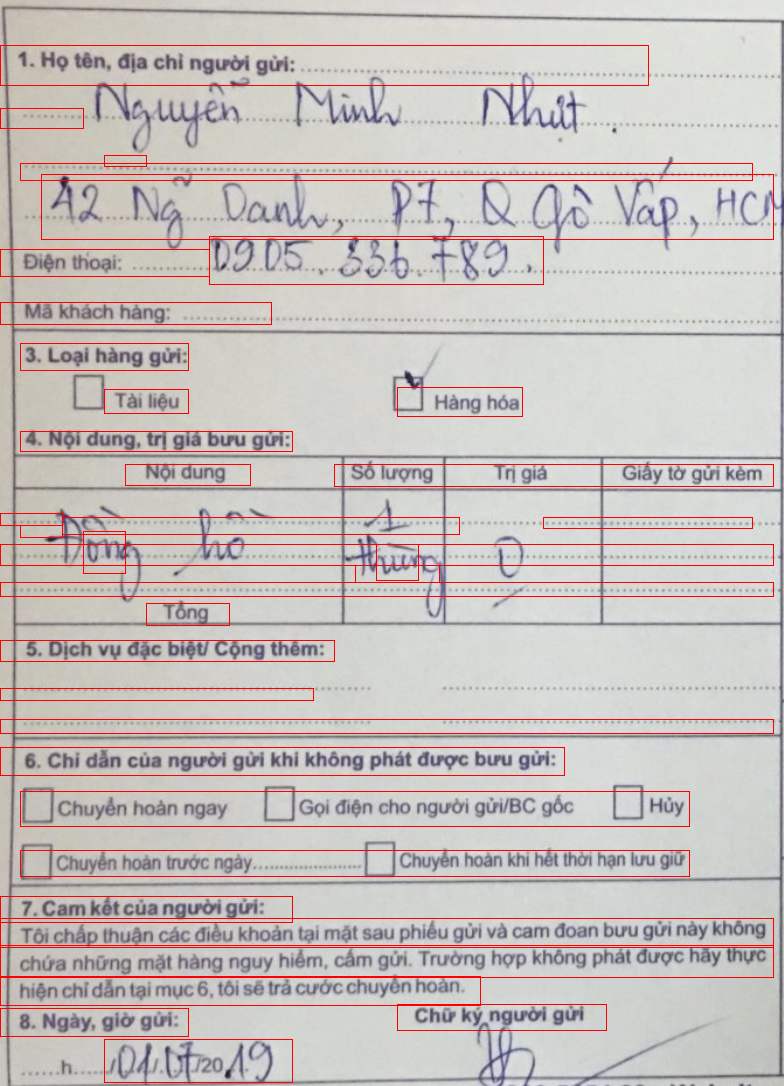 1. Họ tên, địa chỉ người gửi:
Nguyễn Minh Nhựt.
42 Ng Danh, P7, Q Gò Vấp, HCM
Điện thoại: 0905.336.789.
Mã khách hàng:
3. Loại hàng gửi:
Tài liệu Hàng hóa
4. Nội dung, trị giá bưu gửi:
Nội dung Số lượng Trị giá Giấy tờ gửi kèm
1
Đồng hồ thùng 0
Tổng
5. Dịch vụ đặc biệt/ Cộng thêm:
6. Chỉ dẫn của người gửi khi không phát được bưu gửi:
Chuyển hoàn ngay Gọi điện cho người gửi/BC gốc Hủy
Chuyển hoàn trước ngày.................... Chuyển hoàn khi hết thời hạn lưu giữ
7. Cam kết của người gửi:
Tôi chấp thuận các điều khoản tại mặt sau phiếu gửi và cam đoan bưu gửi này không
chứa những mặt hàng nguy hiểm, cấm gửi. Trường hợp không phát được hãy thực
hiện chỉ dẫn tại mục 6, tôi sẽ trả cước chuyển hoàn.
8. Ngày, giờ gửi: Chữ ký người gửi
......h....../01/07/2019